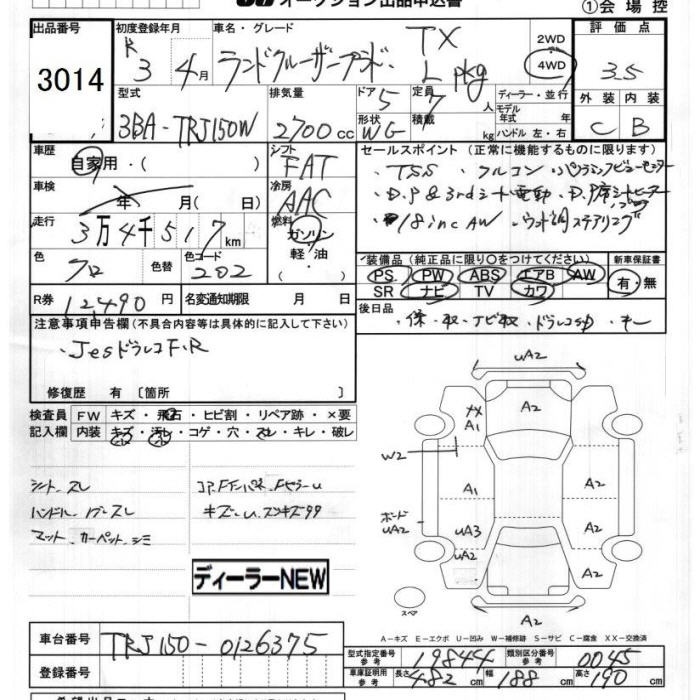 オークション出品申込書
①会場控
出品番号 3014
初度登録年月 R 3 4月
車名・グレード ランドクルーザープラド・TX L pkg
2WD
4WD
評価点 3.5
外装 内装
C B
型式 3BA-TRJ150W
排気量 2700cc
ドア 5
形状 WG
定員 7人
積載 kg
ディーラー・並行
モデル年式 年
ハンドル 左・右
車歴 自家用・( )
車検 年 月( 日)
走行 3万4千517km
色 クロ 色替 カラーコード 202
シフト FAT
冷房 AAC
燃料 ガソリン・軽油・
セールスポイント(正常に機能するものに限ります)
・TSS ・クルコン ・パノラミックビューモニター
・D.P&3rdシート電動 ・D.P席シートヒーター
・18incAW ・ウッド調ステアリング
装備品(純正品に限り〇をつけてください)
PS PW ABS エアB AW
SR ナビ TV カワ
新車保証書 有・無
R券 12490円
名変通知期限 月 日
後日品 ・保・取・ナビ取・ドラレコSD・キー
注意事項申告欄(不具合内容等は具体的に記入して下さい)
・JesドラレコF.R
修復歴 有〔箇所 〕
検査員記入欄
FW キズ・飛石・ヒビ割・リペア跡・×要
内装 キズ・汚レ・コゲ・穴・スレ・キレ・破レ
シート.スレ
ハンドル.ノブ.スレ
マット.カーペット.シミ
ディーラーNEW
uA2
A2
XX
A1
W2
A1
A2
ボードuA2
uA3
A2
uA2
A2
A2
A2
スペア
A-キズ E-エクボ U-凹み W-補修跡 S-サビ C-腐食 XX-交換済
車台番号 TRJ150-0126375
登録番号
型式指定番号 参考 19844
類別区分番号 参考 0045
車庫証明用 参考 長さ 482cm 幅 188cm 高さ 190cm